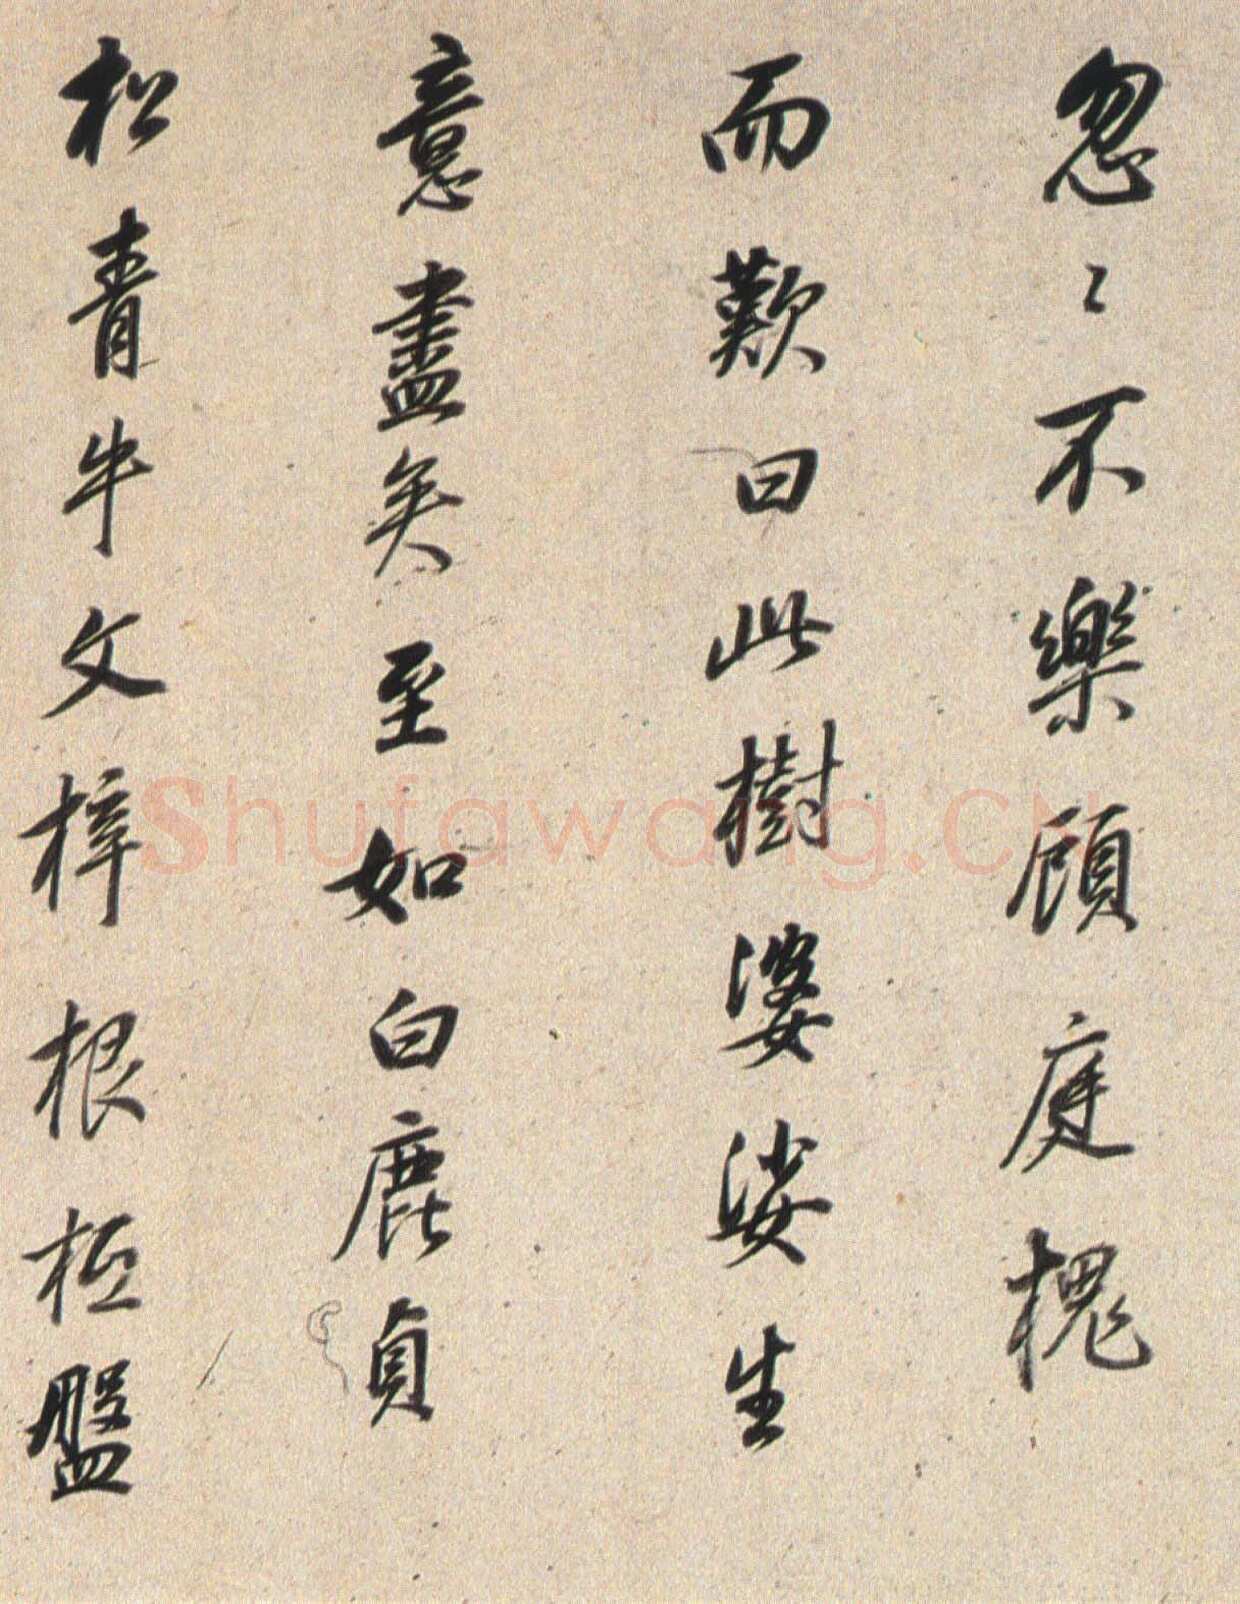 忽〻不樂顧庭槐
而歎曰此樹婆娑生
意盡矣至如白鹿貞
松青牛文梓根柢盤
Shufawang.CN